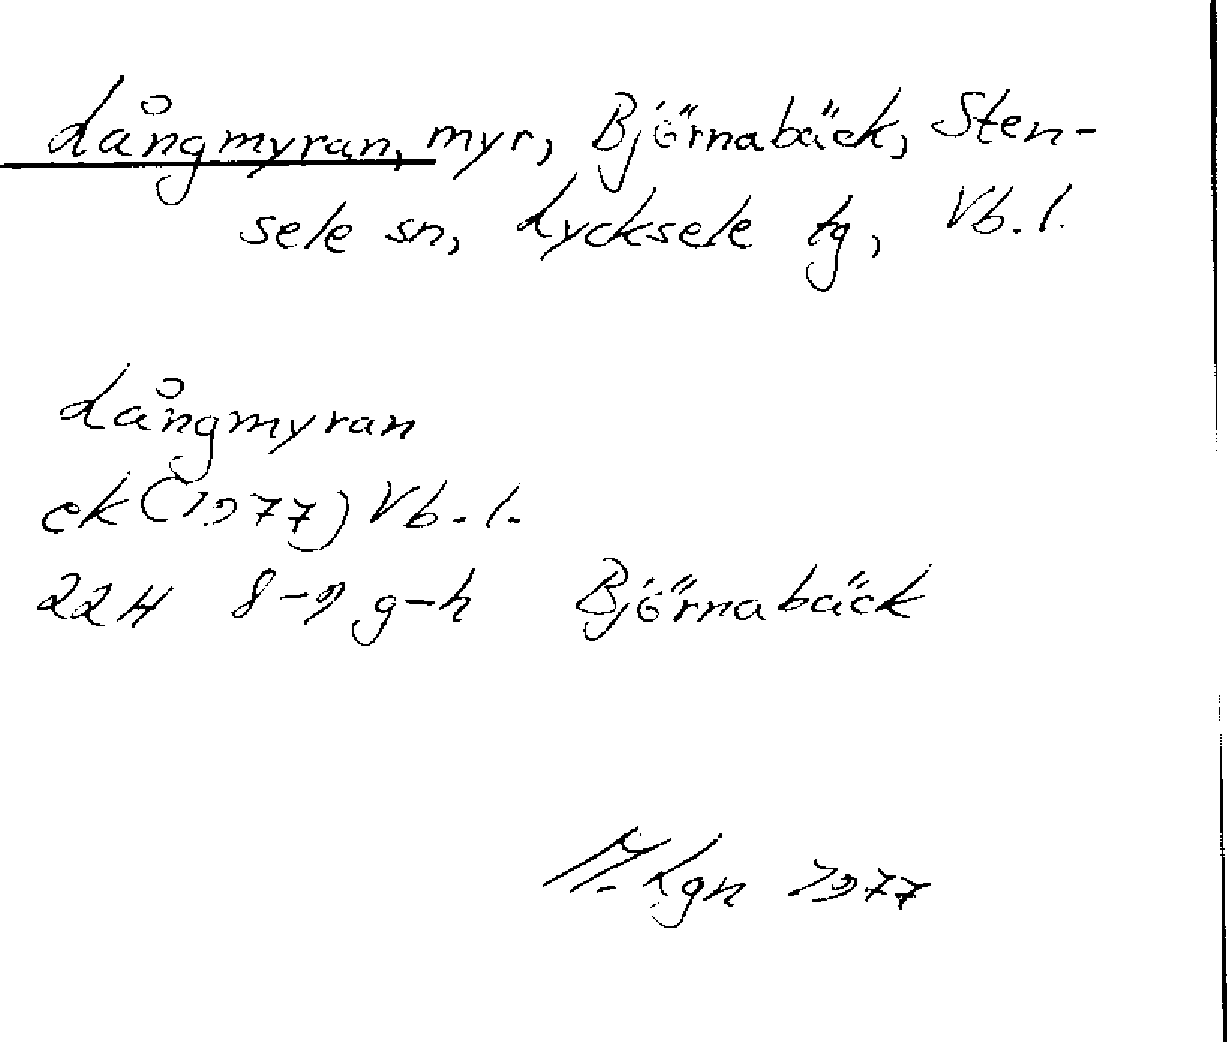 Långmyran, myr, Björnabäck, Sten-
sele sn, Lycksele tg, Vb.l.
Långmyran
ek (1977) Vb.l.
22H 8-9 g-h Björnabäck
M. Lgn 1977